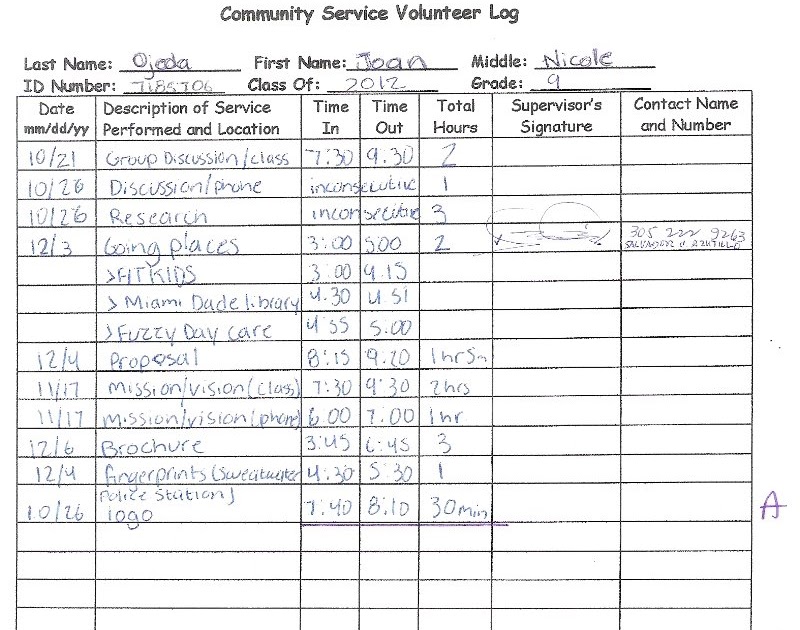 Community Service Volunteer Log
Last Name: Ojeda First Name: Joan Middle: Nicole
ID Number: Class Of: 2012 Grade: 9
Date mm/dd/yy Description of Service Performed and Location Time In Time Out Total Hours Supervisor's Signature Contact Name and Number
10/21 Group Discussion/class 7:30 9:30 2
10/26 Discussion/phone inconsecutive 1
10/26 Research inconsecutive 3
12/3 Going places 3:00 500 2 305 222 9263
>FITKIDS 3:00 4.15
> Miami Dade library 4.30 4 51
>Fuzzy Day care 4 55 5:00
12/4 Proposal 8:15 9:20
11/17 Mission/vision (class) 7:30 9:30 2hrs
11/17 Mission/vision (phone) 6:00 7:00 1hr
12/6 Brochure 3:45 6:45 3
12/4 fingerprints (Sweatwater 4:30 5:30 1
Police Station)
10/26 logo 7:40 8:10 30min
A